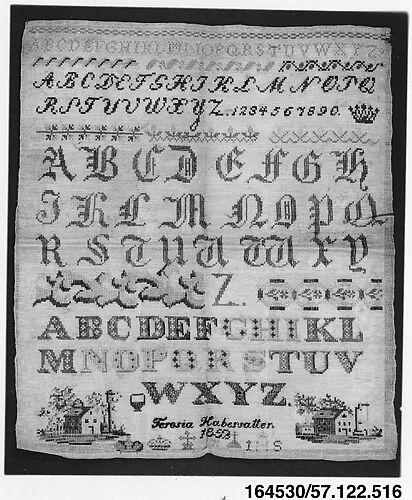 ABCDEFGHIKLMNOPQRSTUVWXYZ
ABCDEFGHIKLMNOPQ
RSTUVWXYZ. 1234567890.
ABCD EFGH
IKLMNOPQ
RSTUVWXY
Z.
ABCDEFGHIKL
MNOPQRSTUV
WXYZ.
Teresia Habersatter.
1853
164530/57.122.516